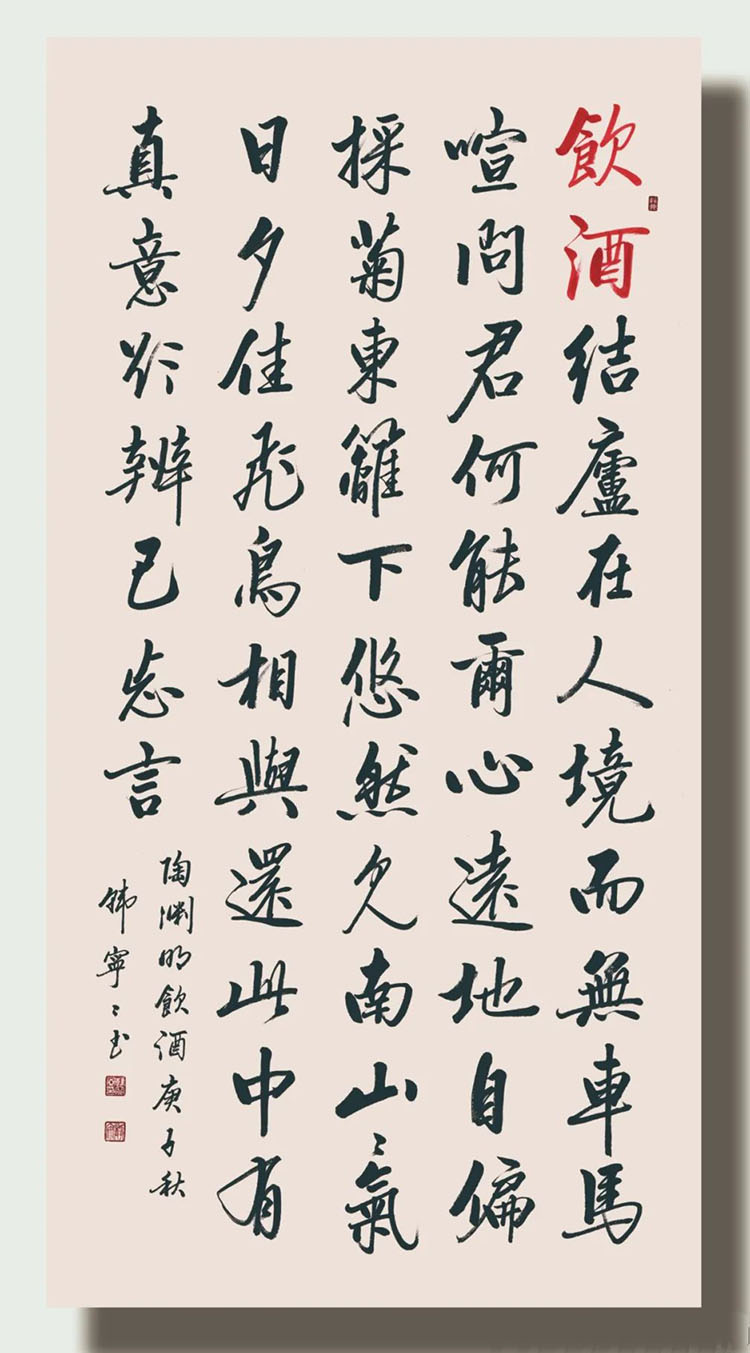 飲酒結廬在人境而無車馬
喧問君何能爾心遠地自偏
採菊東籬下悠然見南山〻氣
日夕佳飛鳥相與還此中有
真意欲辨已忘言
陶淵明飲酒庚子秋
韓寧〻书